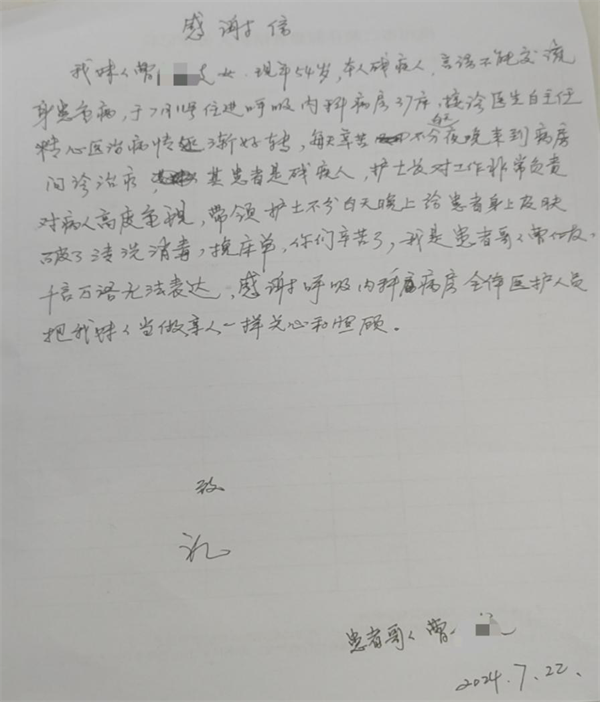 感谢信
我妹妹曹 女,现年54岁,本人残疾人,言语不能交流
身患重病,于7月11号住进呼吸内科病房37床,接诊医生白主任
精心医治病情逐渐好转,每天辛苦不分夜晚来到病房
问诊治疗 其患者是残疾人,护士长对工作非常负责
对病人高度重视,带领护士不分白天晚上给患者身上皮肤
破了清洗消毒,换床单,你们辛苦了,我是患者哥哥曹
千言万语无法表达,感谢呼吸内科病房全体医护人员
把我妹妹当做亲人一样关心和照顾。
致
礼
患者哥哥曹
2024.7.22.